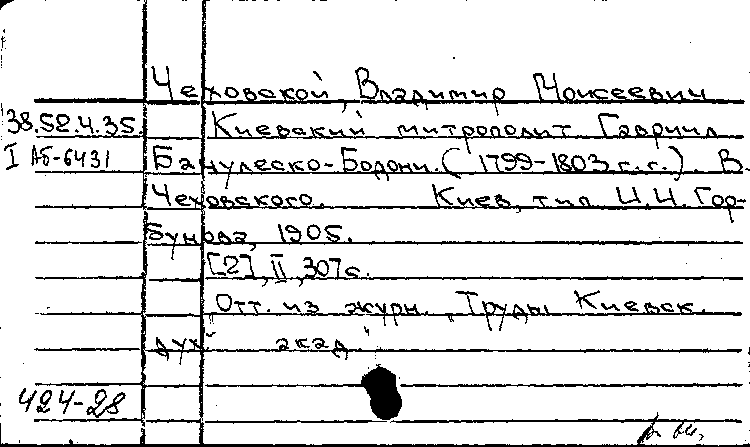 Чеховской, Владимир Моисеевич
38.52.4.35. Киевский митрополит Гавриил
I Аб-6431 Банулеско-Бодони. (1799-1803 г.г.) В.
Чеховского. Киев, тип. И.И. Гор-
бунова, 1905.
[2], II, 307 с.
Отт. из журн. „Труды Киевск.
дух. акад."
424-28